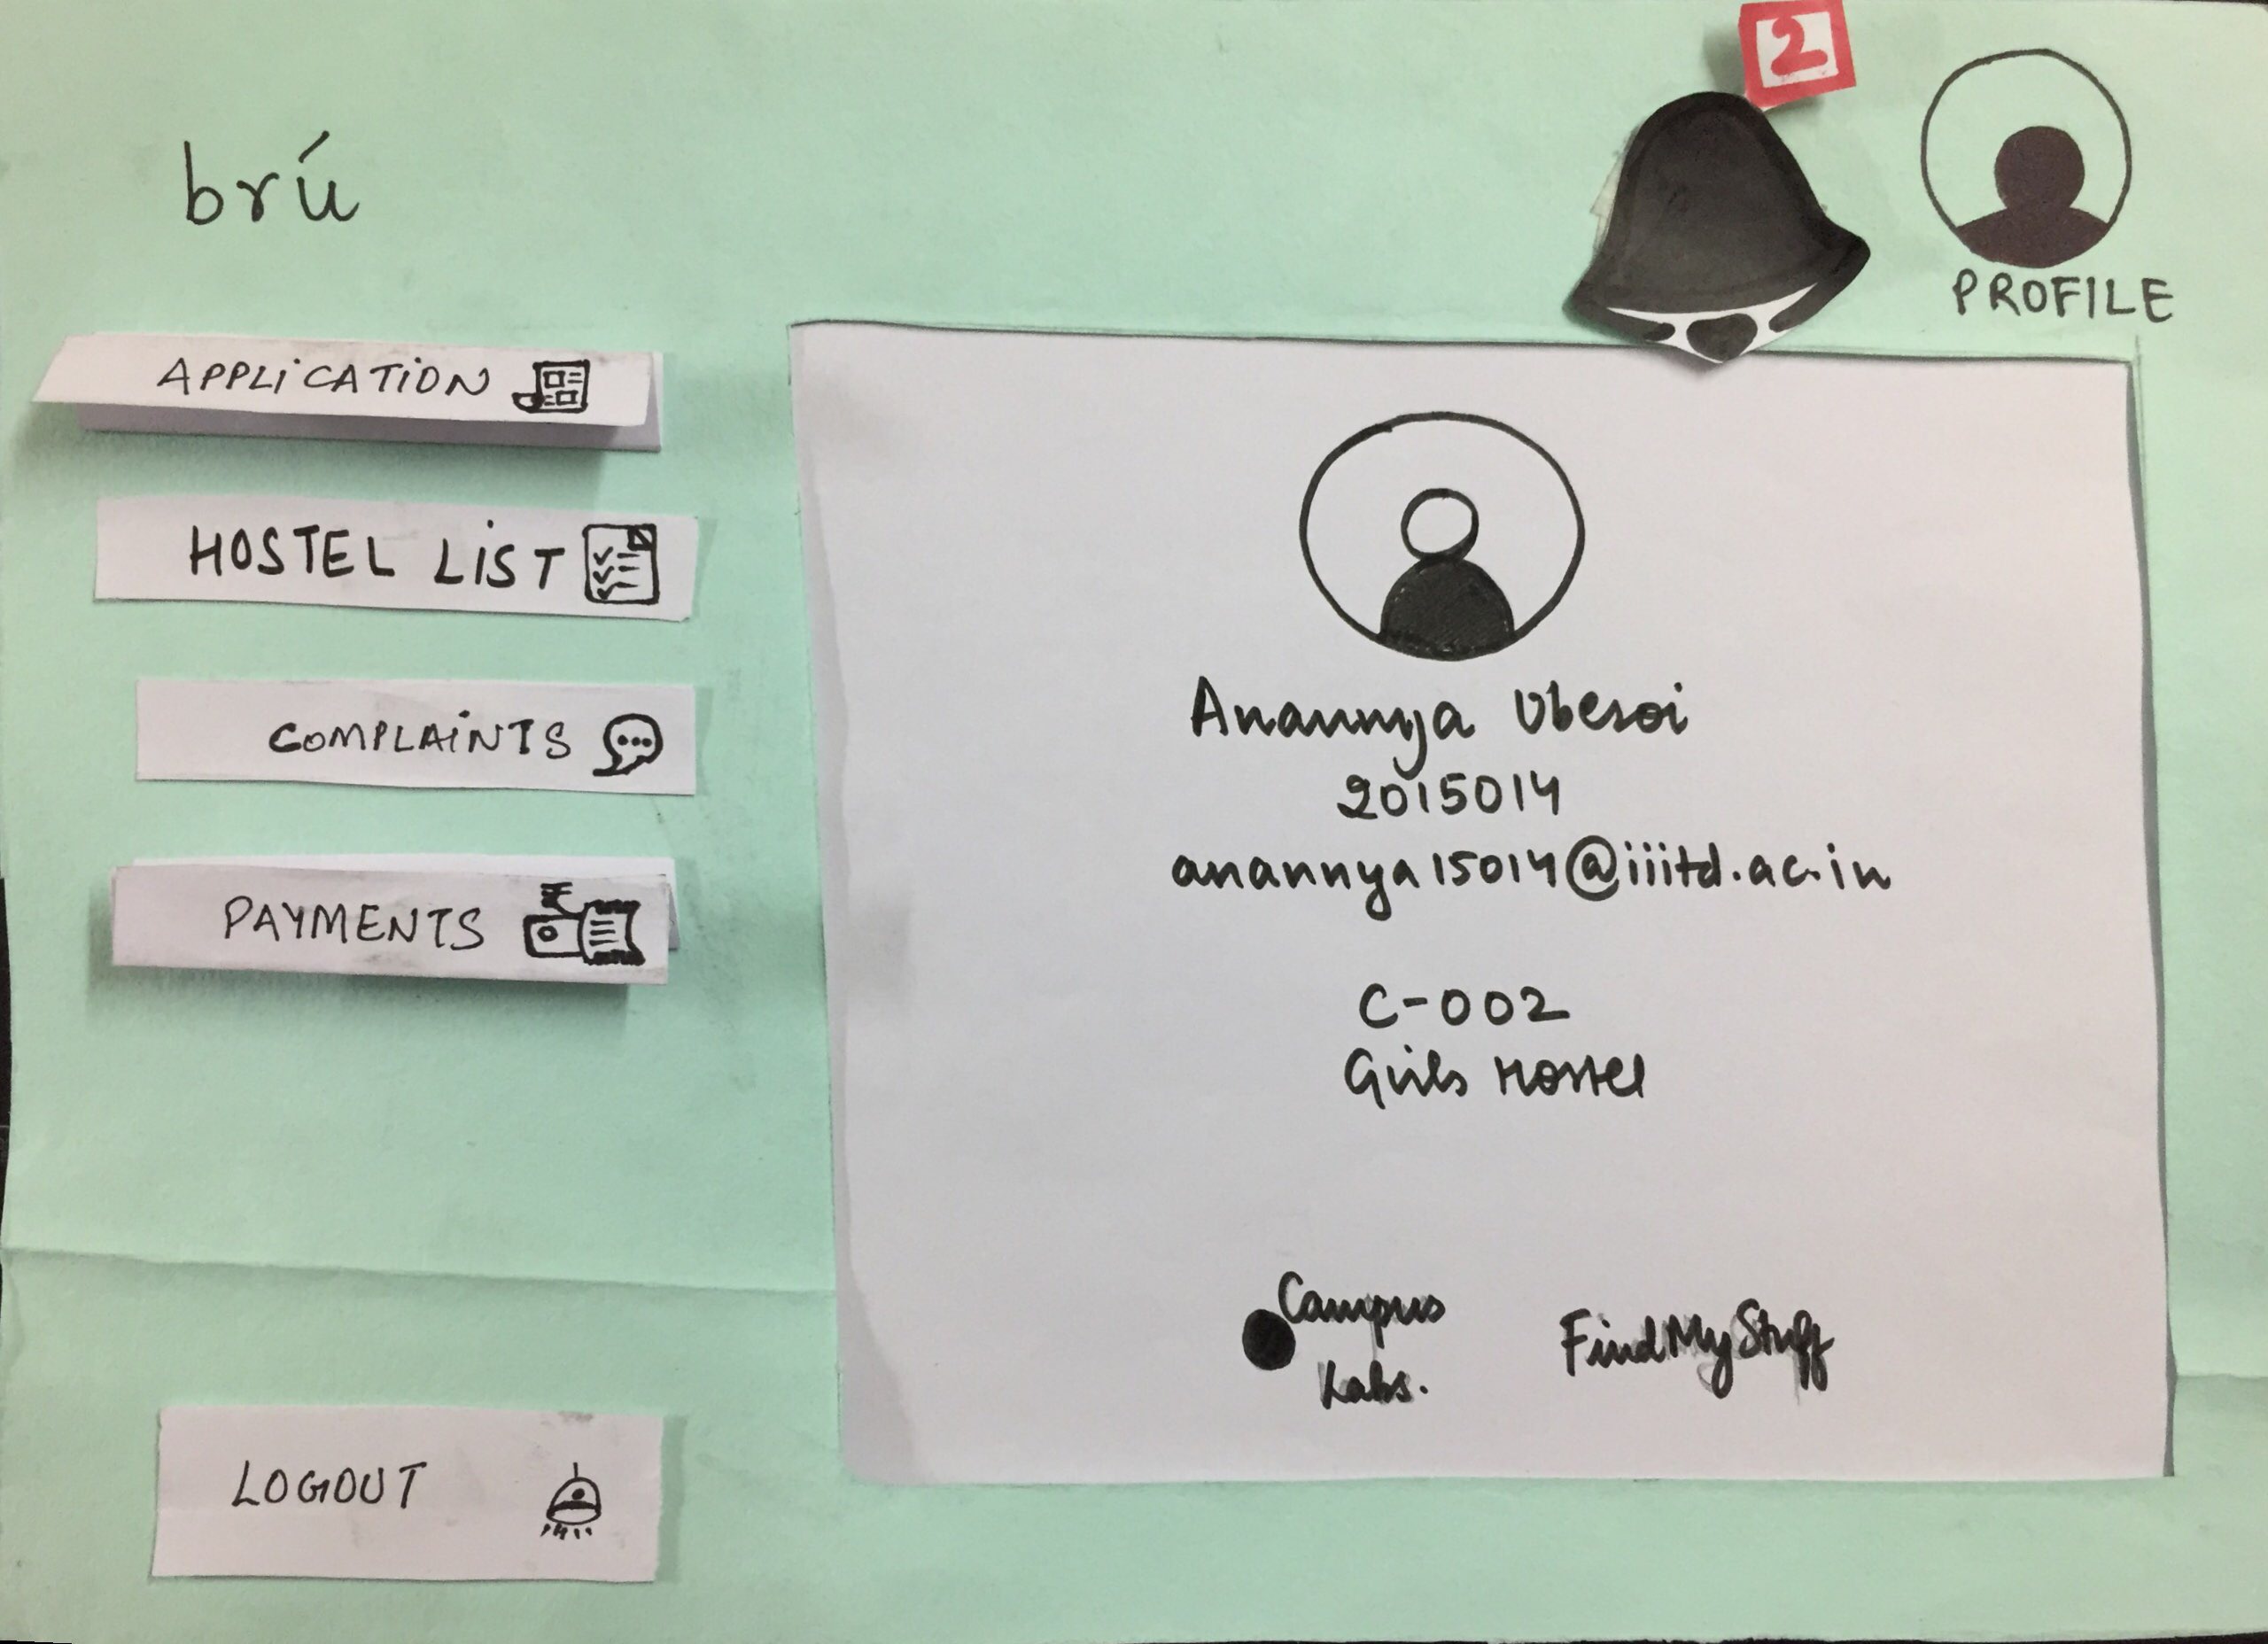 brú
2
PROFILE
APPLICATION
HOSTEL LIST
COMPLAINTS
PAYMENTS
LOGOUT
Anannya Uberoi
2015014
anannya15014@iiitd.ac.in
C-002
Girls Hostel
Campus
Labs.
FindMyStuff